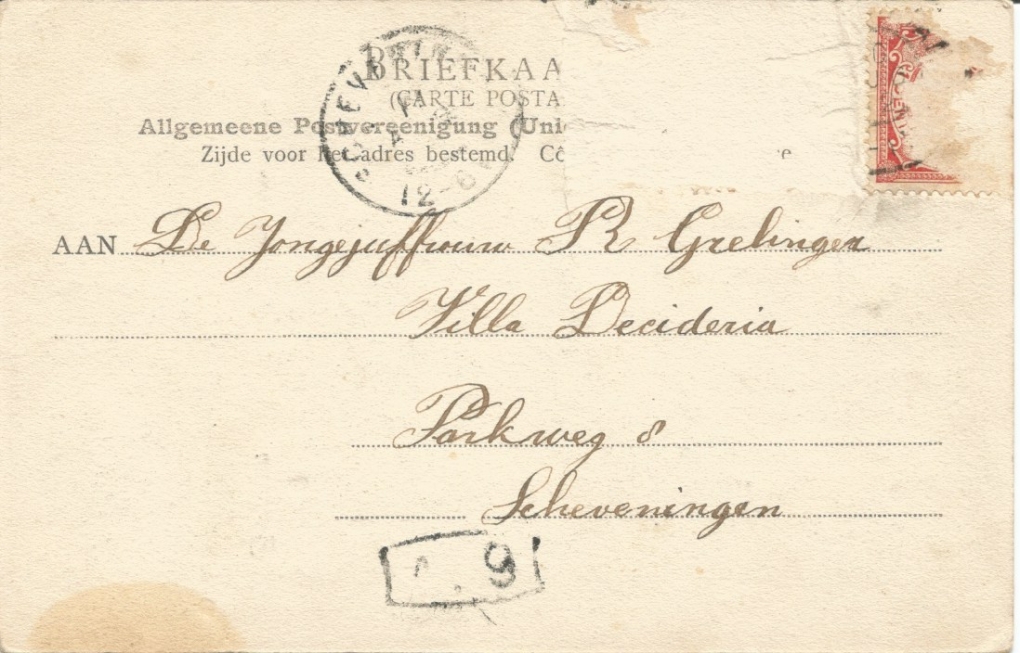 BRIEFKAA
(CARTE POSTA
Allgemeene Postvereeniging (Uni
Zijde voor het adres bestemd. Cô e
SCHEVENING
12-
AAN De Jongejuffrouw R Grelinger
Villa Decideria
Parkweg 8
Scheveningen
9